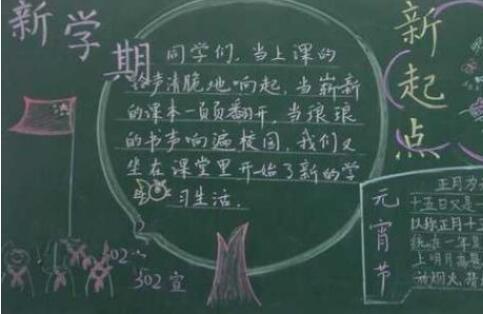 新学期
同学们，当上课的
铃声清脆地响起，当崭新
的课本一页页翻开，当琅琅
的书声响遍校园，我们又
坐在课堂里开始了新的学
习生活。
新起点
元宵节
正月为
十五日又是一
以称正月十五
上明月高悬
302宣